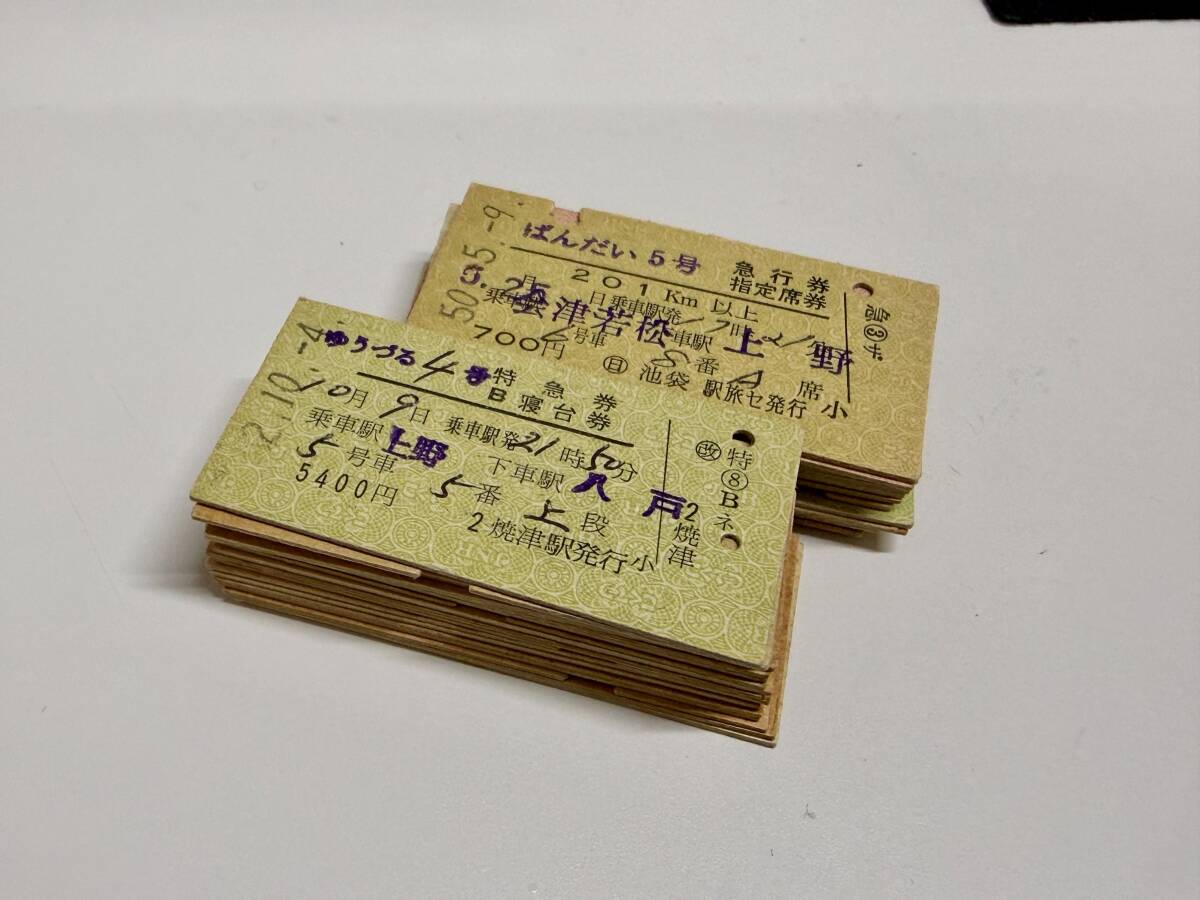 50.5.-9
ばんだい5号
急行券
指定席券
201Km以上
会津若松 上野
700円
番A席
㊐池袋駅旅セ発行小
急③ザ
2.10.-4
ゆうづる4号 特急券
B寝台券
10月9日 乗車駅発21時50分
乗車駅上野 下車駅八戸
5号車 5番上段
5400円
2焼津駅発行小
㊢特⑧Bネ
2焼津